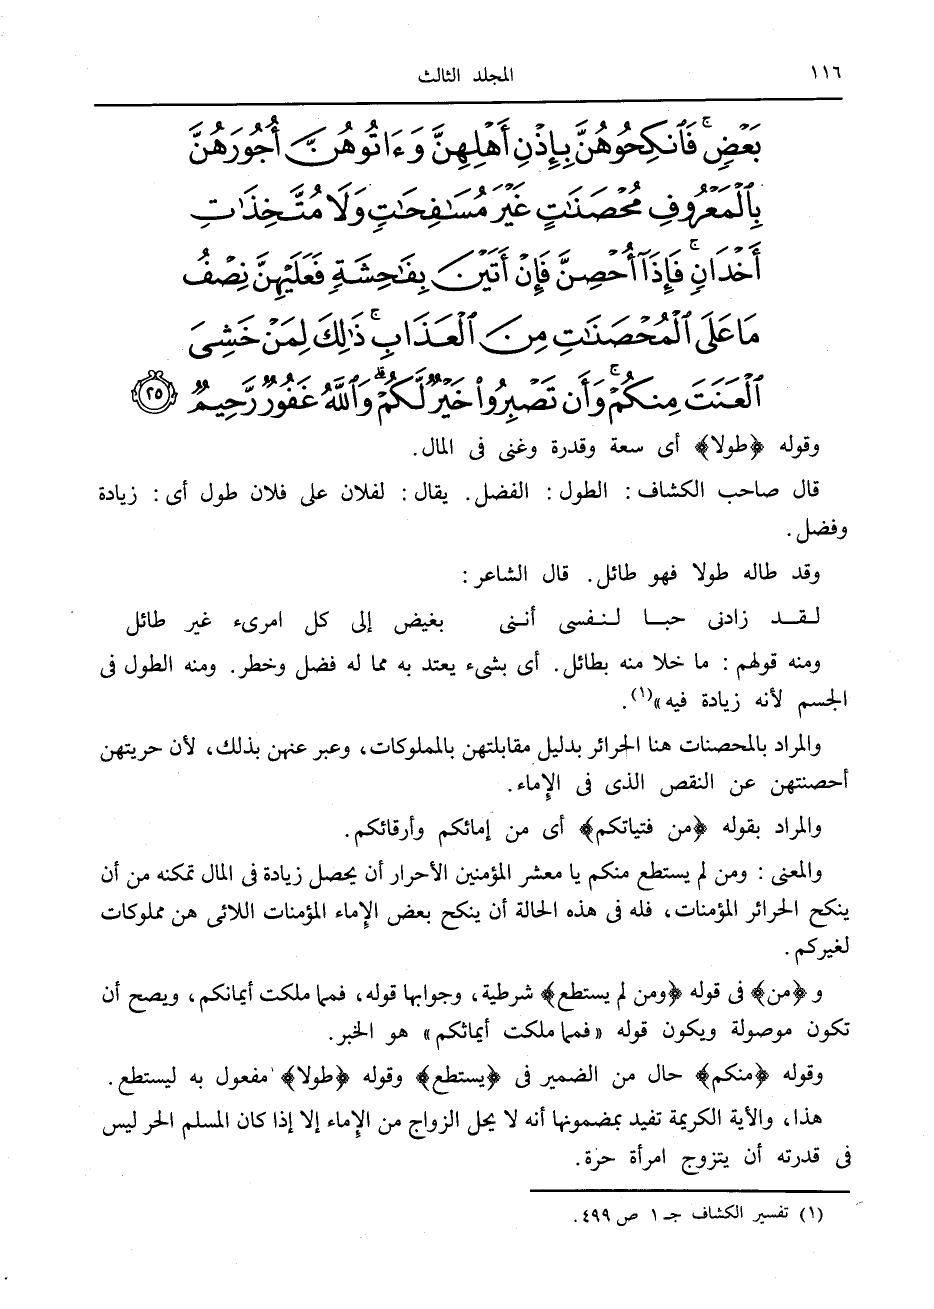 ١١٦ المجلد الثالث
بَعۡضٖۚ فَٱنكِحُوهُنَّ بِإِذۡنِ أَهۡلِهِنَّ وَءَاتُوهُنَّ أُجُورَهُنَّ
بِٱلۡمَعۡرُوفِ مُحۡصَنَٰتٍ غَيۡرَ مُسَٰفِحَٰتٖ وَلَا مُتَّخِذَٰتِ
أَخۡدَانٖۚ فَإِذَآ أُحۡصِنَّ فَإِنۡ أَتَيۡنَ بِفَٰحِشَةٖ فَعَلَيۡهِنَّ نِصۡفُ
مَا عَلَى ٱلۡمُحۡصَنَٰتِ مِنَ ٱلۡعَذَابِۚ ذَٰلِكَ لِمَنۡ خَشِيَ
ٱلۡعَنَتَ مِنكُمۡۚ وَأَن تَصۡبِرُواْ خَيۡرٞ لَّكُمۡۗ وَٱللَّهُ غَفُورٞ رَّحِيمٞ ٢٥
وقوله ﴿طولا﴾ أى سعة وقدرة وغنى فى المال.
قال صاحب الكشاف : الطول : الفضل. يقال : لفلان على فلان طول أى : زيادة
وفضل.
وقد طاله طولا فهو طائل. قال الشاعر :
لقد زادنى حبا لنفسى أننى بغيض إلى كل امرىء غير طائل
ومنه قولهم : ما خلا منه بطائل. أى بشىء يعتد به مما له فضل وخطر. ومنه الطول فى
الجسم لأنه زيادة فيه»(١).
والمراد بالمحصنات هنا الحرائر بدليل مقابلتهن بالمملوكات، وعبر عنهن بذلك، لأن حريتهن
أحصنتهن عن النقص الذى فى الإماء.
والمراد بقوله ﴿من فتياتكم﴾ أى من إمائكم وأرقائكم.
والمعنى : ومن لم يستطع منكم يا معشر المؤمنين الأحرار أن يحصل زيادة فى المال تمكنه من أن
ينكح الحرائر المؤمنات، فله فى هذه الحالة أن ينكح بعض الإماء المؤمنات اللائى هن مملوكات
لغيركم.
و ﴿من﴾ فى قوله ﴿ومن لم يستطع﴾ شرطية، وجوابها قوله، فمما ملكت أيمانكم، ويصح أن
تكون موصولة ويكون قوله «فمما ملكت أيمائكم» هو الخبر.
وقوله ﴿منكم﴾ حال من الضمير فى ﴿يستطع﴾ وقوله ﴿طولا﴾ مفعول به ليستطع.
هذا، والأية الكريمة تفيد بمضمونها أنه لا يحل الزواج من الإماء إلا إذا كان المسلم الحر ليس
فى قدرته أن يتزوج امرأة حرة.
(١) تفسير الكشاف جـ ١ ص ٤٩٩.